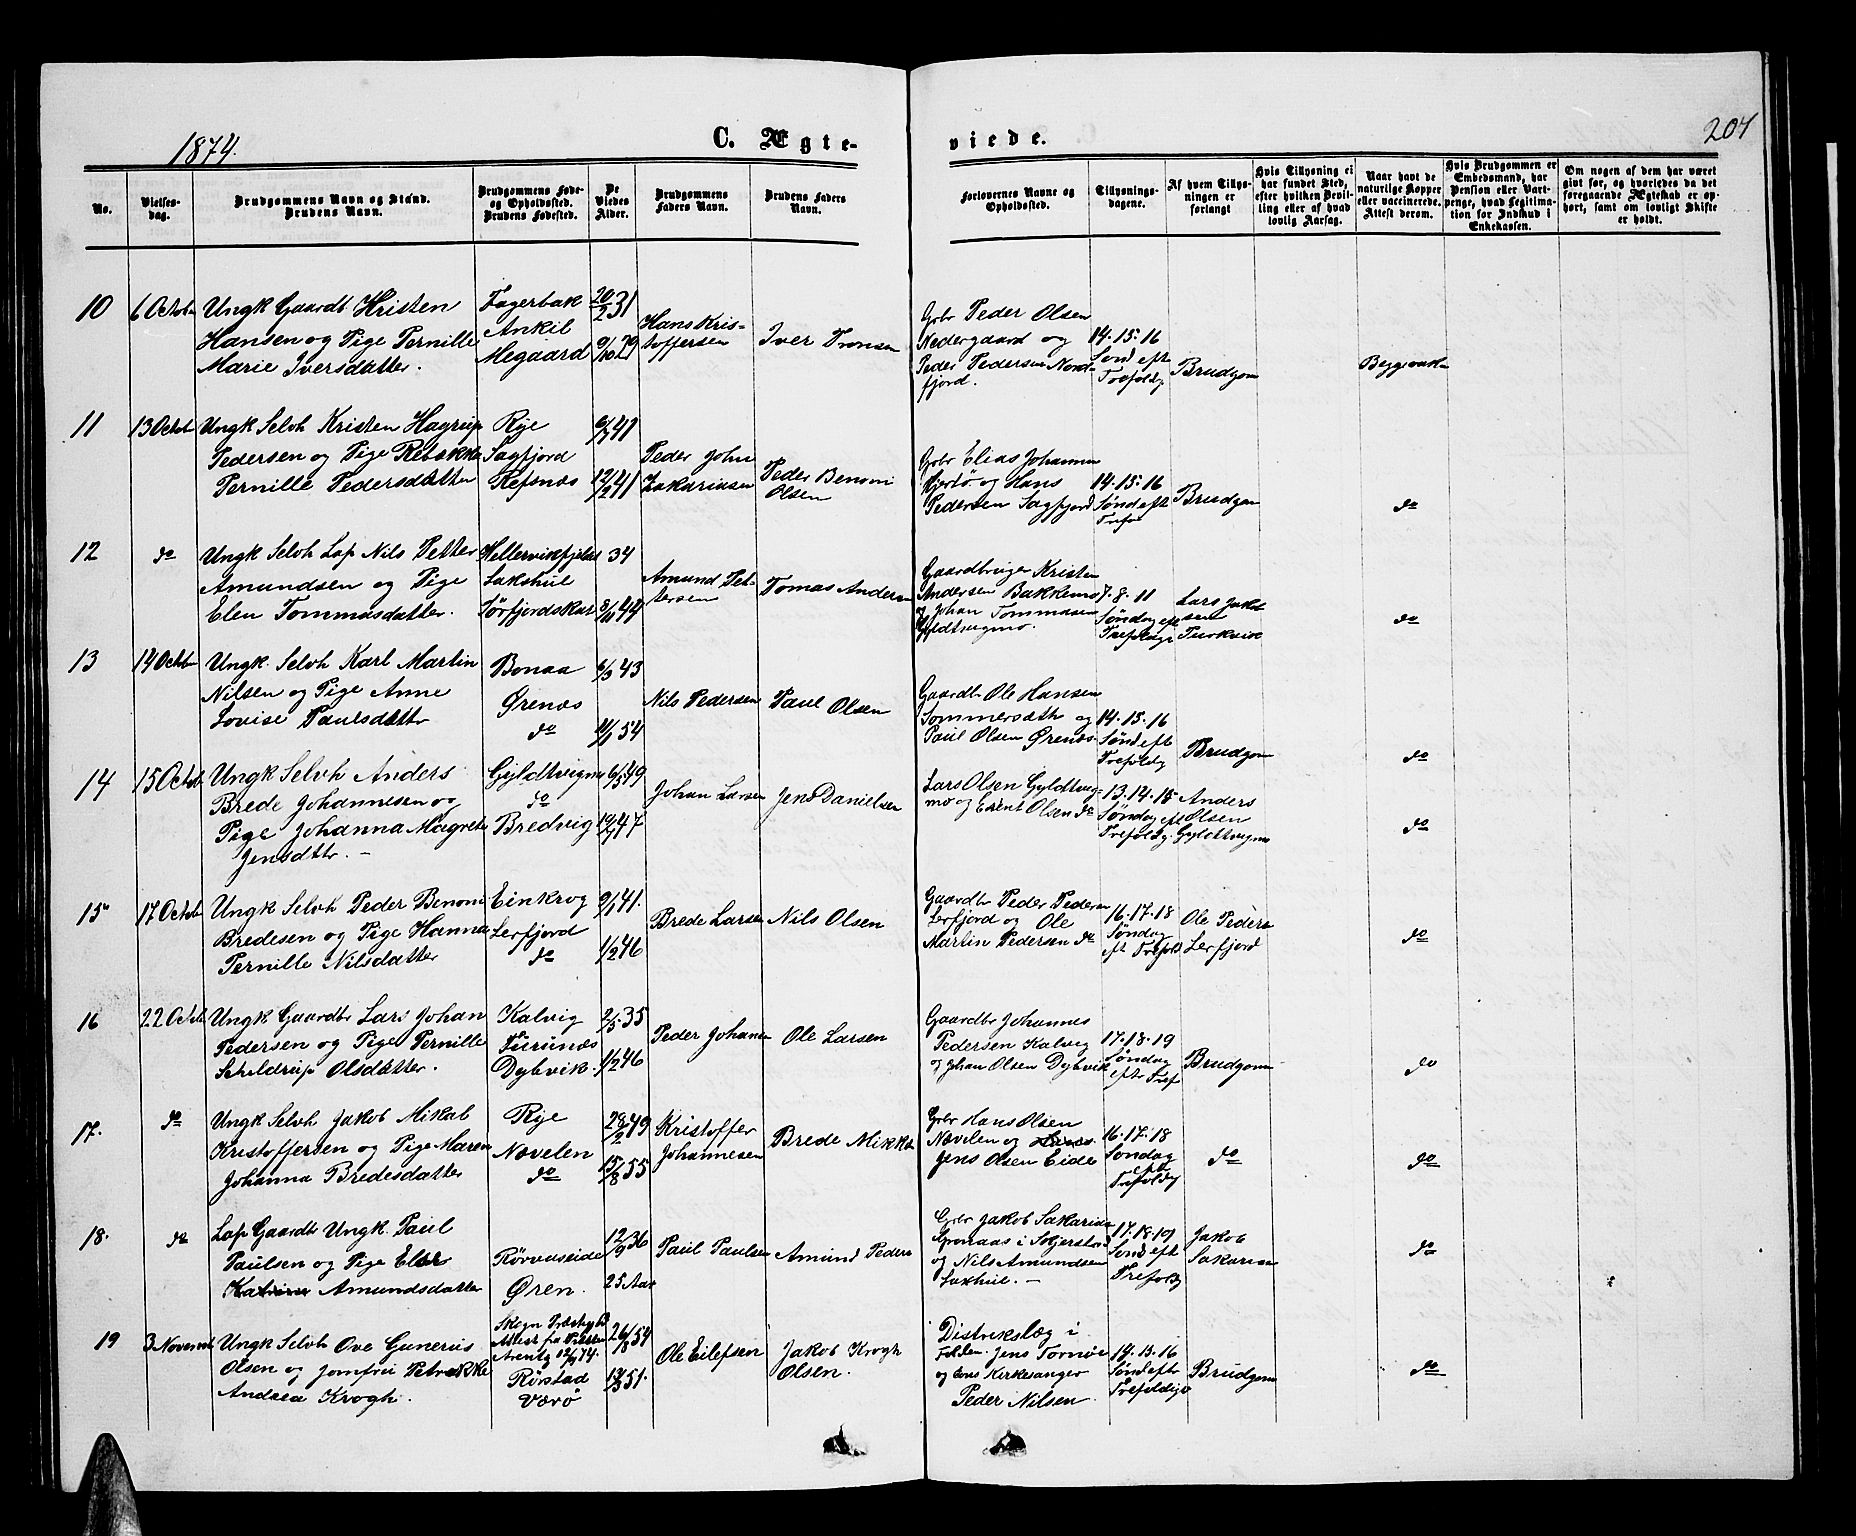 1874.
C. Ægte-
viede.
204
No.
Vielses-
dag.
Brudgommens Navn og Stand.
Brudens Navn.
Brudgommens Føde-
og Opholdssted.
Brudens Fødested.
De
Viedes
Alder.
Brudgommens
Faders Navn.
Brudens Faders
Navn.
Forlovernes Navne og
Opholdssted.
Tillysnings-
dagene.
Af hvem Tillys-
ningen er
forlangt
Hvis Tillysning ei
har fundet Sted,
efter hvilken Bevil-
ling eller af hvad
lovlig Aarsag.
Naar havt de
naturlige Kopper
eller vaccinerede.
Attest derom.
Hvis Brudgommen er
Embedsmand, har
Pension eller Vart-
penge, hvad Legitima-
tion for Indskud i
Enkekassen.
Om nogen af dem har været
givt før, og hvorledes da det
foregaaende Ægteskab er op-
hørt, samt om lovligt Skifte
er holdt.
10
6 Octob
Ungk Gaardb. Kristen
Hansen og Pige Pernille
Marie Iversdatter.
Fagerbak
Ankil
Megaard
20/2 31
9/10 29
Hans Kris-
toffersen
Iver Tronsen
Gbr Peder Olsen
Nedergaard og
Peder Pedersen Nord-
fjord.
14. 15. 16
Sønd eft
Trefoldg
Brudgom
Begge vak
11
13 Octob
Ungk Selvh Kristen Hagrup
Pedersen og Pige Rebekka
Pernille Pedersdatter
Rye
Sagfjord
Refsnæs
6/7 41
12/2 41
Peder John
Zakariasen
Peder Benoni
Olsen
Gbr Elias Johannes
Hjertø og Hans
Pedersen Sagfjord
14. 15. 16
Sønd eft
Trefo
Brudgom
do
12
do
Ungk Selvh Lap Nils Petter
Amundsen og Pige
Elen Tommasdatter.
Hellervikfjeldet
Lakshul
Sørfjordskar
34
8/11 44
Amund Pet-
tersen
Tomas Andersen
Gaardbruger Kristen
Andersen Bakkemo
Johan Tommasen
Gyldtvigmo.
7. 8. 11
Søndag eft
Trefoldgr
Lars Jakob
sen
do
13
14 Octob
Ungk. Selvh Karl Martin
Nilsen og Pige Anne
Lovise Paulsdattr
Bonaa
Ørenæs
do
6/3 43
11/1 54
Nils Pedersen
Paul Olsen
Gaardbr Ole Hansen
Sommersæth og
Paul Olsen Ørenæs
14. 15. 16
Sønd eft
Trefoldg
Brudgom
do
14
15 Octob
Ungk Selvh Anders
Brede Johannesen og
Pige Johanna Magrete
Jensdttr. —
Gyldtvigmo
do
Bredvig
6/5 49
19/7 47
Johan Larsen
Jens Danielsen
Lars Olsen Gyldtvig
mo og Event Olsen do
13. 14. 15
Søndag eft
Trefoldg.
Anders
Olsen
Gyldtvigmo
do
15
17 Octob
Ungk Selvh Peder Benoni
Bredesen og Pige Hanna
Pernille Nilsdatter
Einkrog
Lerfjord
do
9/1 41.
1/2 46
Brede Larsen
Nils Olsen
Gaardbr Peder Pedersen
Lerfjord og Ole
Martin Pedersen do
16. 17. 18
Søndag
eft Trefold
Ole Peders
Lerfjord
do
16
22 Octob
Ungk Gaardbr Lars Johan
Pedersen og Pige Pernille
Schildrup Olsdatter.
Kalvig
Furunæs
Dybvik.
2/5 35
1/2 46
Peder Johansen
Ole Larsen
Gaardbr Johannes
Pedersen Kalvig
og Johan Olsen Dybvik
17. 18. 19
Søndag
eftr Tref
Brudgom
do
17.
do
Ungk Selvh Jakob Mikal
Kristoffersen og Pige Maren
Johanna Bredesdatter
Rye
Nævelen
do
28/2 49
15/8 55
Kristoffer
Johannesen
Brede Mikkels
Gbr Hans Olsen
Nævelen og
Jens Olsen Eide
16. 17. 18
Søndag
eftr
Trefoldg
do
do
18.
do
Lap Gaardbr Ungk. Paul
Paulsen og Pige Elen
Katrine Amundsdatter
Rørvaseide
Øren.
12/9 36
25 Aar
Paul Paulsen
Amund Peders
Gbr Jakob Sakarias
Grønaas i Skjerstad
og Nils Amundsen
Laxhul. —
17. 18. 19
Sønd eft
Trefoldg
Jakob
Sakarias
do
19
3 Novemb
Ungk Selvh Ove Gunerius
Olsen og Jomfru Petrekke
Andrea Krogh.
Attest fra
Rørstad
Værø
26/8 54
12/3 51.
Ole Eilefsen
Jakob Krogh
Olsen.
Distrikslæg i
Folden. Jens Tornøe
og Cons Kirkesanger
Peder Nilsen
14. 15. 16
Sønd eftr
Trefoldigh
Brudgom
do